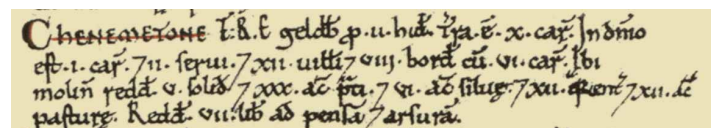 CHENEMETONE T.R.E. geldb̄ p. v. hid̄. T̄ra. ē. x. car̄. In dn̄io
est. i. car̄. ⁊ ii. serui. ⁊ xii. uilli ⁊ viii. bord̄ cū. vi. car̄. Ibi
molin̄ redd̄. v. solid̄ ⁊ xxx. ac̄ p̄ti. ⁊ vi. ac̄ siluę. ⁊ xii. ⁊ xii. ac̄
pasturę. Redd̄. vii. lib̄ ad pensā ⁊ arsurā.